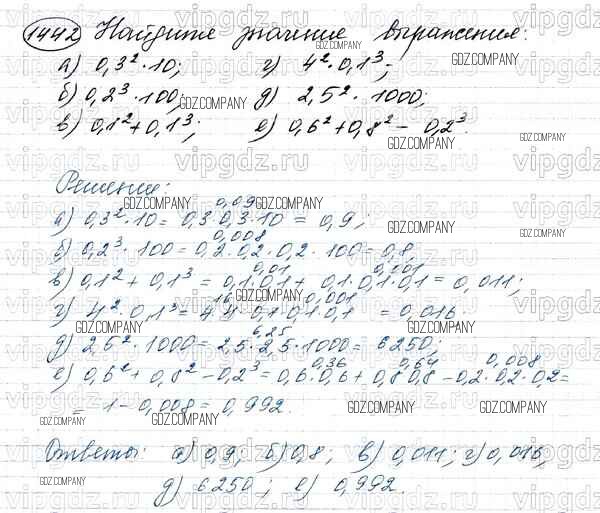 1442 Найдите значение выражения:
а) 0,3² · 10; г) 4² · 0,1³;
б) 0,2³ · 100; д) 2,5² · 1000;
в) 0,1² + 0,1³; е) 0,6² + 0,8² − 0,2³.
Решение:
0,09
а) 0,3² · 10 = 0,3 · 0,3 · 10 = 0,9;
0,008
б) 0,2³ · 100 = 0,2 · 0,2 · 0,2 · 100 = 0,8;
0,01 0,001
в) 0,1² + 0,1³ = 0,1 · 0,1 + 0,1 · 0,1 · 0,1 = 0,011;
16 0,001
г) 4² · 0,1³ = 4 · 4 · 0,1 · 0,1 · 0,1 = 0,016.
6,25
д) 2,5² · 1000 = 2,5 · 2,5 · 1000 = 6250;
0,36 0,64 0,008
е) 0,6² + 0,8² − 0,2³ = 0,6 · 0,6 + 0,8 · 0,8 − 0,2 · 0,2 · 0,2 =
= 1 − 0,008 = 0,992.
Ответы: а) 0,9; б) 0,8; в) 0,011; г) 0,016;
д) 6250; е) 0,992.
vipgdz.ru
GDZ.COMPANY